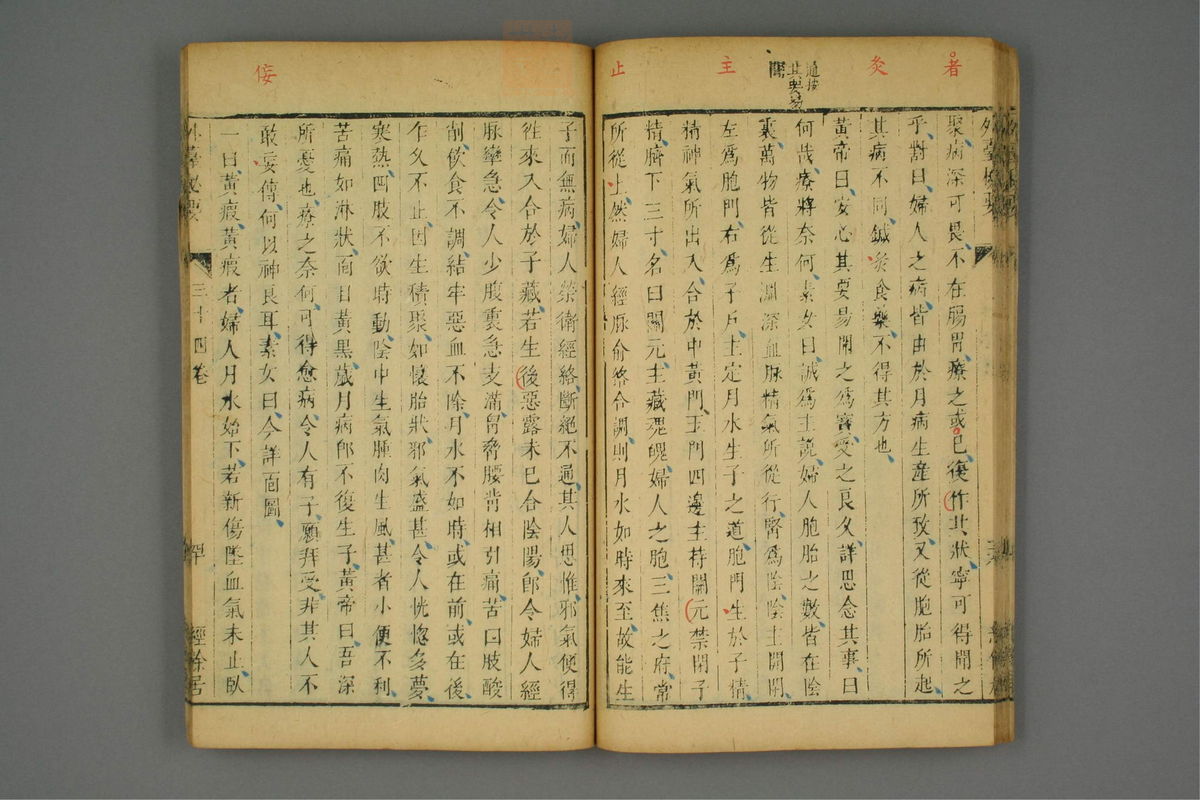 者
灸
主
止
聚病深可畏不在腸胃療之或已復作其狀寧可得聞之
乎對曰婦人之病皆由於月病生産所致又從胞胎所起
其病不同鍼灸食藥不得其方也
黃帝曰安心其要易開之爲寶愛之良久詳思念其事曰
何哉療將奈何素女曰誠爲主說婦人胞胎之數皆在陰
裏萬物皆從生淵深血脉精氣所從行腎爲陰陰主開閉
左爲胞門右爲子戶主定月水生子之道胞門生於子精
精神氣所出入合於中黃門玉門四邊主持關元禁閉子
精臍下三寸名曰關元主藏魂魄婦人之胞三焦之府常
所從止然婦人經脉俞絡合調則月水如時來至故能生
侫
子而無病婦人榮衛經絡斷絕不通其人思惟邪氣便得
徃來入合於子藏若生後惡露未已合陰陽郎令婦人經
脉攣急令人少腹裏急支滿胷脅腰背相引痛苦四肢酸
削飲食不調結牢惡血不除月水不如時或在前或在後
乍久不止因生積聚如懷胎狀邪氣盛甚令人恍惚多夢
寒熱四肢不欲時動陰中生氣腫肉生風甚者小便不利
苦痛如淋狀面目黃黑歲月病郎不復生子黃帝曰吾深
所憂也療之奈何可得愈病令人有子願拜受非其人不
敢妄傳何以神良耳素女曰今詳面圖
一曰黃瘕黃瘕者婦人月水始下若新傷墜血氣未止臥
外臺祕要
三十四卷
經餘居